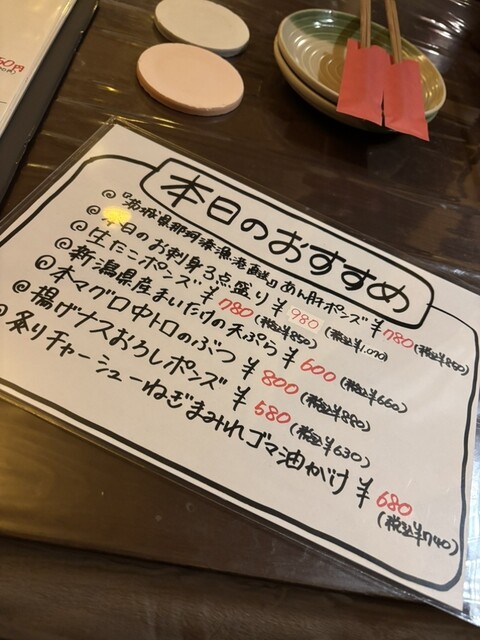 本日のおすすめ
◎『茨城県那珂湊漁港直送』あん肝ポンズ ¥780(税込¥850)
◎本日のお刺身3点盛り ¥980(税込¥1,070)
◎生たこポンズ ¥780(税込¥850)
◎新潟県産まいたけの天ぷら ¥600(税込¥660)
◎本マグロ中トロのぶつ ¥800(税込¥880)
◎揚げナスおろしポンズ ¥580(税込¥630)
◎炙りチャーシューねぎまみれゴマ油がけ ¥680
(税込¥740)